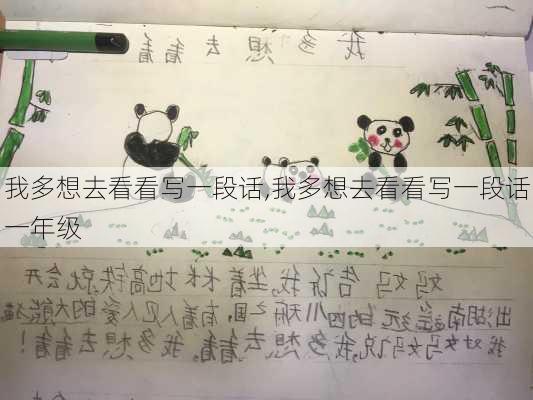 我多想去看看
我多想去看看写一段话,我多想去看看写一段话
一年级
妈妈告诉我,坐着长长的高铁就会开
出湖南,遥远的四川天府之国,有着人见人爱的大熊猫
我对妈妈说,我多想去看看,我多想去看看!